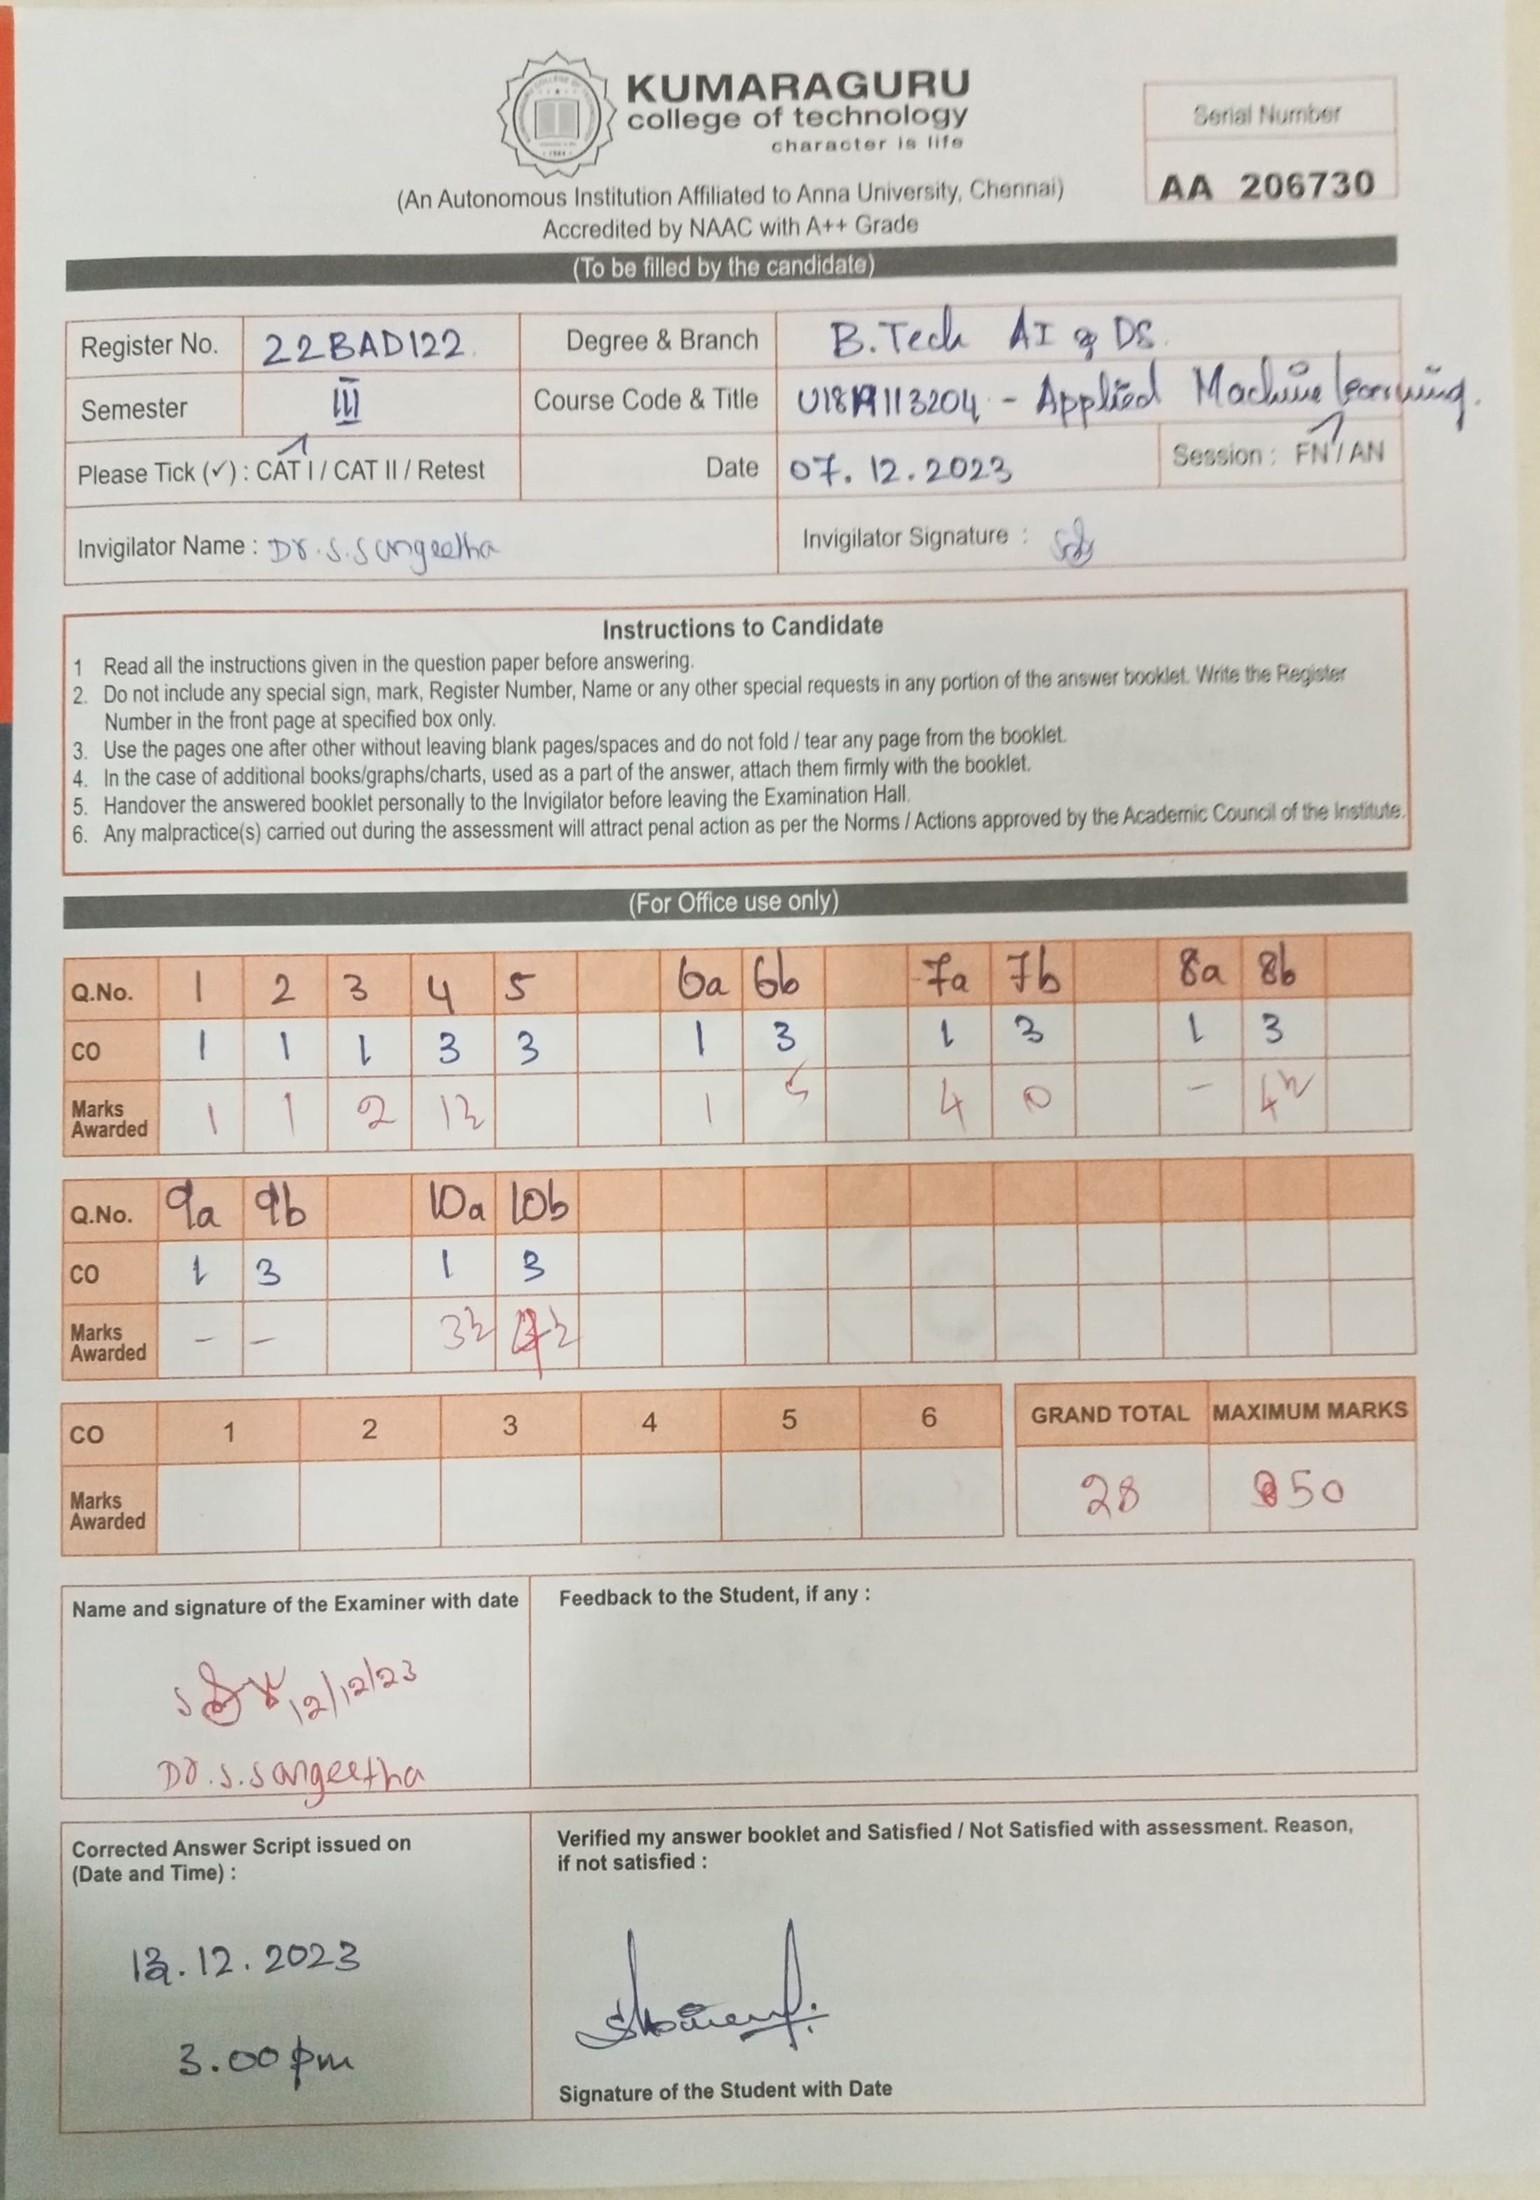 KUMARAGURU
college of technology
character is life
Serial Number
AA 206730
(An Autonomous Institution Affiliated to Anna University, Chennai)
Accredited by NAAC with A++ Grade
(To be filled by the candidate)
Register No. 22BAD122 Degree & Branch B.Tech AI & DS.
Semester III Course Code & Title U18AII3204 - Applied Machine learning.
Please Tick (✓) : CAT I / CAT II / Retest Date 07.12.2023 Session : FN / AN
Invigilator Name : Dr.S.Sangeetha Invigilator Signature :
Instructions to Candidate
1 Read all the instructions given in the question paper before answering.
2. Do not include any special sign, mark, Register Number, Name or any other special requests in any portion of the answer booklet. Write the Register
Number in the front page at specified box only.
3. Use the pages one after other without leaving blank pages/spaces and do not fold / tear any page from the booklet.
4. In the case of additional books/graphs/charts, used as a part of the answer, attach them firmly with the booklet.
5. Handover the answered booklet personally to the Invigilator before leaving the Examination Hall.
6. Any malpractice(s) carried out during the assessment will attract penal action as per the Norms / Actions approved by the Academic Council of the Institute.
(For Office use only)
Q.No. 1 2 3 4 5 6a 6b 7a 7b 8a 8b
CO 1 1 1 3 3 1 3 1 3 1 3
Marks Awarded 1 1 2 1½ 1 5 4 0 - 4½
Q.No. 9a 9b 10a 10b
CO 1 3 1 3
Marks Awarded - - 3½
CO 1 2 3 4 5 6 GRAND TOTAL MAXIMUM MARKS
Marks Awarded 28 50
Name and signature of the Examiner with date
Feedback to the Student, if any :
12/12/23
Dr.S.Sangeetha
Corrected Answer Script issued on
(Date and Time) :
Verified my answer booklet and Satisfied / Not Satisfied with assessment. Reason,
if not satisfied :
13.12.2023
3.00 pm
Signature of the Student with Date